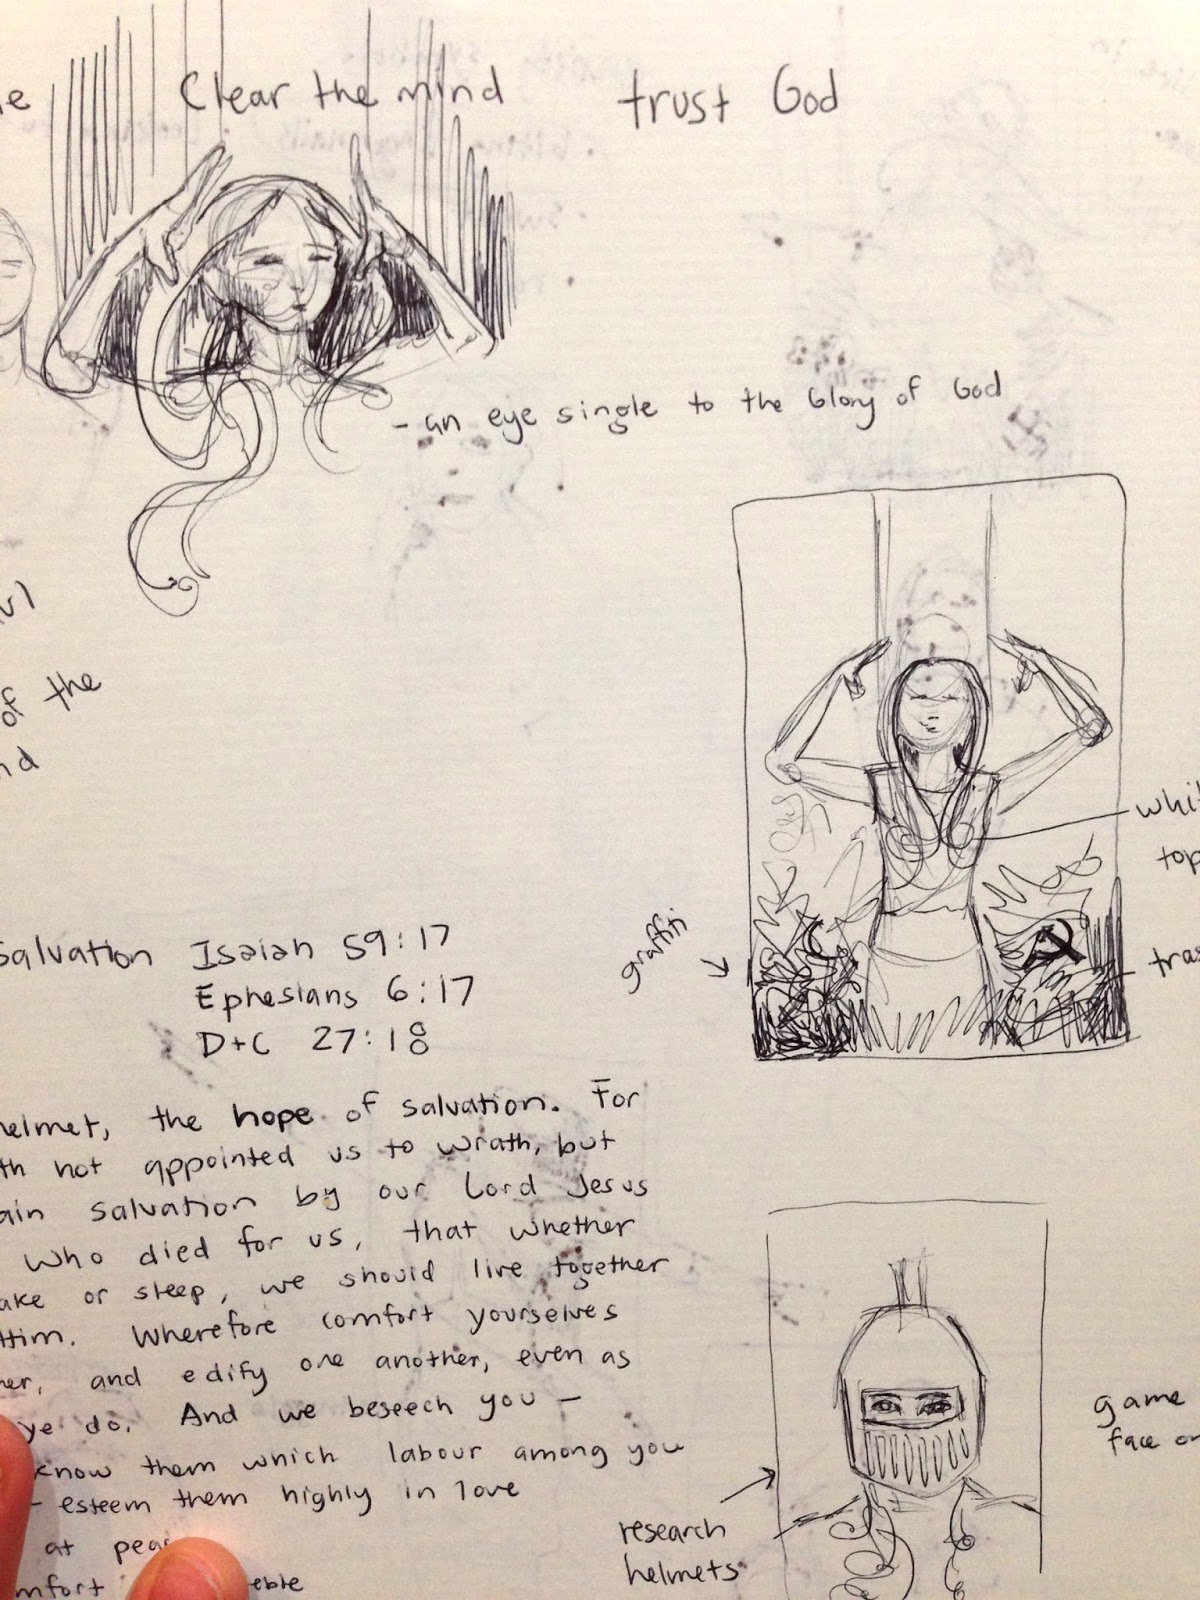 Clear the mind trust God
- an eye single to the Glory of God
of the
whi
top
graffiti
tras
Salvation Isaiah 59:17
Ephesians 6:17
D+C 27:18
helmet, the hope of salvation. For
th not appointed us to wrath, but
ain salvation by our Lord Jesus
who died for us, that whether
ake or sleep, we should live together
Him. Wherefore comfort yourselves
her, and edify one another, even as
ye do. And we beseech you -
know them which labour among you
- esteem them highly in love
at peac
mfort eble
game
face on
research
helmets